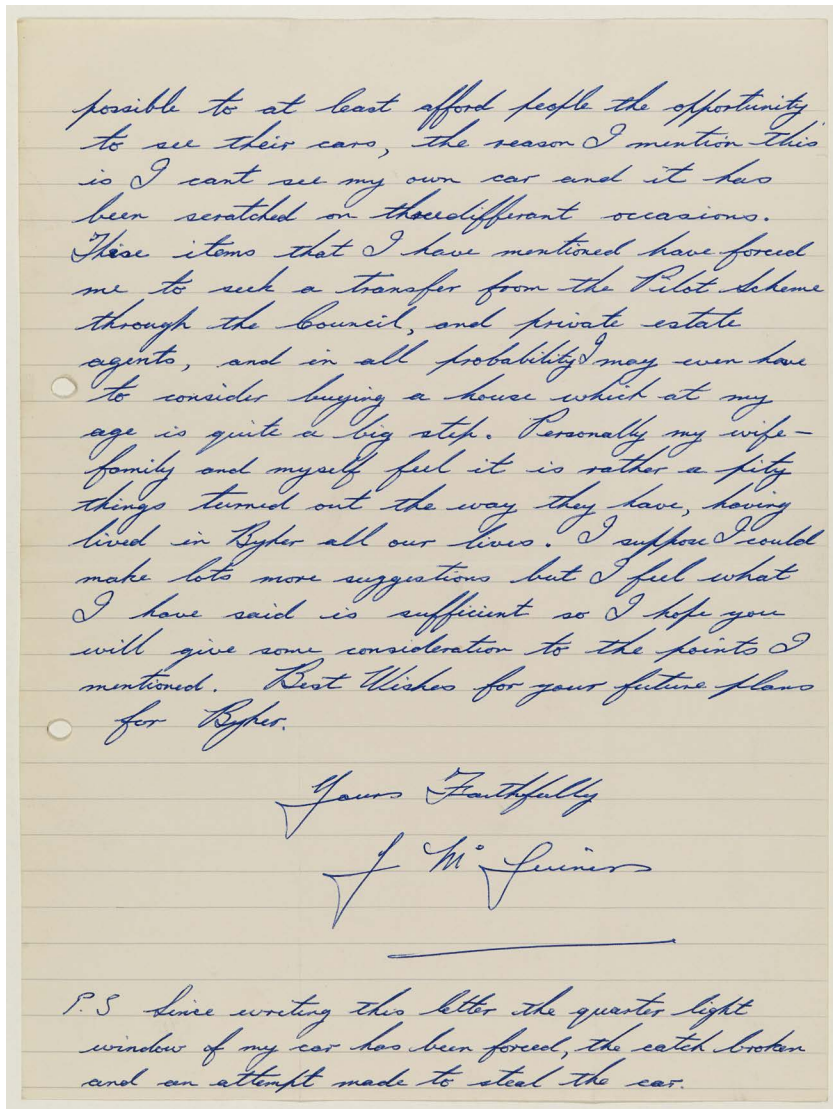 possible to at least afford people the opportunity
to see their cars, the reason I mention this
is I cant see my own car and it has
been scratched on three differant occasions.
These items that I have mentioned have forced
me to seek a transfer from the Pilot Scheme
through the Council, and private estate
agents, and in all probability I may even have
to consider buying a house which at my
age is quite a big step. Personally my wife -
family and myself feel it is rather a pity
things turned out the way they have, having
lived in Byker all our lives. I suppose I could
make lots more suggestions but I feel what
I have said is sufficient so I hope you
will give some consideration to the points I
mentioned. Best Wishes for your future plans
for Byker.
Yours Faithfully
J Mc
P.S Since writing this letter the quarter light
window of my car has been forced, the catch broken
and an attempt made to steal the car.